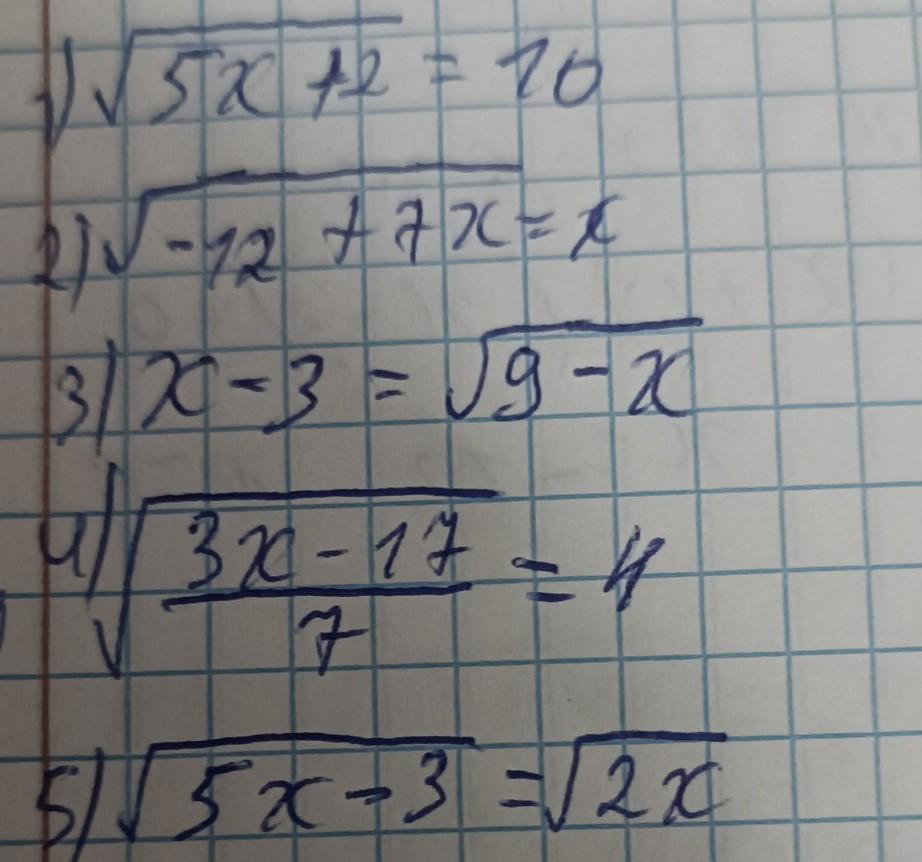 1) √(5x+2) = 10
2) √(-12 + 7x) = x
3) x - 3 = √(9 - x)
4) √((3x - 17)/7) = 4
5) √(5x - 3) = √(2x)